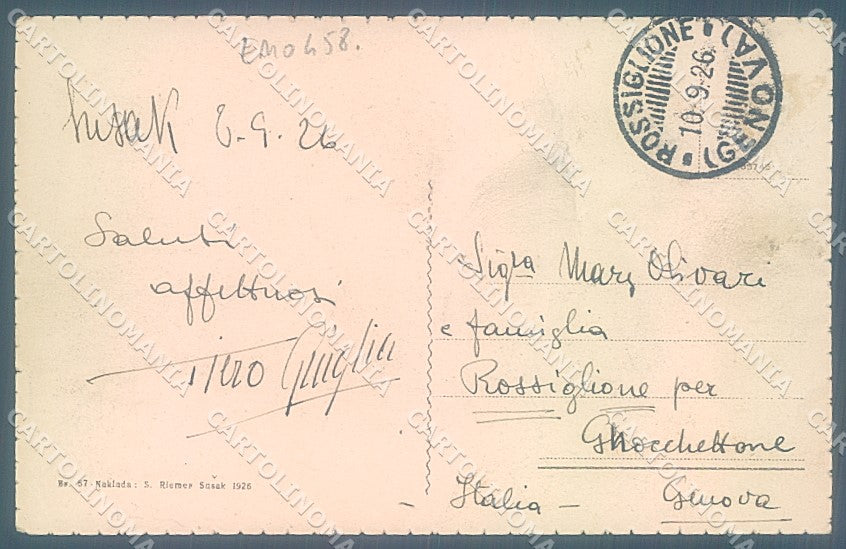 EMO h 58.
ROSSIGLIONE (GENOVA)
10·9·26
Susak 8-9-26
Saluti
affettuosi
Piero
Sigra Mary Olivari
e famiglia
Rossiglione per
Italia - Genova
Br. 67 - Naklada: S. Riemer Sušak 1926
CARTOLINOMANIA